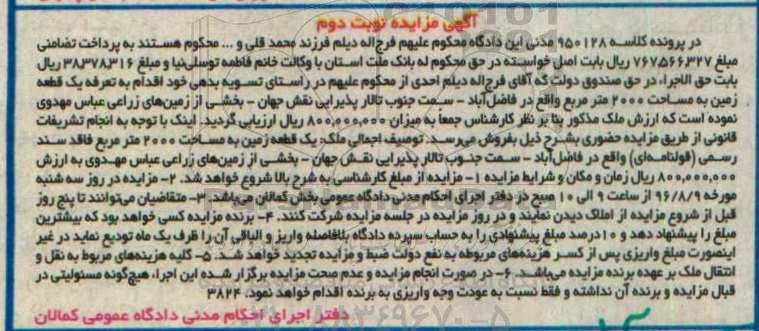 آگهی مزایده نوبت دوم
در پرونده کلاسه ۹۵۰۱۲۸ مدنی این دادگاه محکوم علیهم فرج‌اله دیلم فرزند محمد قلی و ... محکوم هستند به پرداخت تضامنی
مبلغ ۷۶۷۵۶۶۳۲۷ ریال بابت اصل خواسته در حق محکوم له بانک ملت استان با وکالت خانم فاطمه توسلی‌نیا و مبلغ ۳۸۳۷۸۳۱۶ ریال
بابت حق الاجراء در حق صندوق دولت که آقای فرج‌اله دیلم احدی از محکوم علیهم در راستای تسویه بدهی خود اقدام به تعرفه یک قطعه
زمین به مساحت ۲۰۰۰ متر مربع واقع در فاضل‌آباد - سمت جنوب تالار پذیرایی نقش جهان - بخشی از زمین‌های زراعی عباس مهدوی
نموده است که ارزش ملک مذکور بنا بر نظر کارشناس جمعا به میزان ۸۰۰,۰۰۰,۰۰۰ ریال ارزیابی گردید. اینک با توجه به انجام تشریفات
قانونی از طریق مزایده حضوری بشرح ذیل بفروش می‌رسد. توصیف اجمالی ملک: یک قطعه زمین به مساحت ۲۰۰۰ متر مربع فاقد سند
رسمی (قولنامه‌ای) واقع در فاضل‌آباد - سمت جنوب تالار پذیرایی نقش جهان - بخشی از زمین‌های زراعی عباس مهدوی به ارزش
۸۰۰,۰۰۰,۰۰۰ ریال زمان و مکان و شرایط مزایده ۱- مزایده از مبلغ کارشناسی به شرح بالا شروع خواهد شد. ۲- مزایده در روز سه شنبه
مورخه ۹۶/۸/۹ از ساعت ۹ الی ۱۰ صبح در دفتر اجرای احکام مدنی دادگاه عمومی بخش کمالان می‌باشد. ۳- متقاضیان می‌توانند تا پنج روز
قبل از شروع مزایده از املاک دیدن نمایند و در روز مزایده در جلسه مزایده شرکت کنند. ۴- برنده مزایده کسی خواهد بود که بیشترین
مبلغ را پیشنهاد دهد و ۱۰ درصد مبلغ پیشنهادی را به حساب سپرده دادگاه بلافاصله واریز و الباقی آن را ظرف یک ماه تودیع نماید در غیر
اینصورت مبلغ واریزی پس از کسر هزینه‌های مربوطه به نفع دولت ضبط و مزایده تجدید خواهد شد. ۵- کلیه هزینه‌های مربوط به نقل و
انتقال ملک بر عهده برنده مزایده می‌باشد. ۶- در صورت انجام مزایده و عدم صحت مزایده برگزار شده این اجرا، هیچ‌گونه مسئولیتی در
قبال مزایده و برنده آن نداشته و فقط نسبت به عودت وجه واریزی به برنده اقدام خواهد نمود. ۳۸۲۴
دفتر اجرای احکام مدنی دادگاه عمومی کمالان